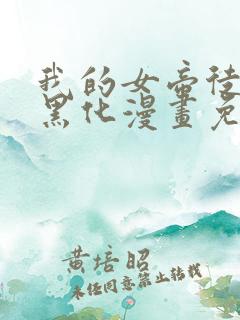 我的女帝徒
黑化漫畫免
黄培昭
未经同意禁止转载